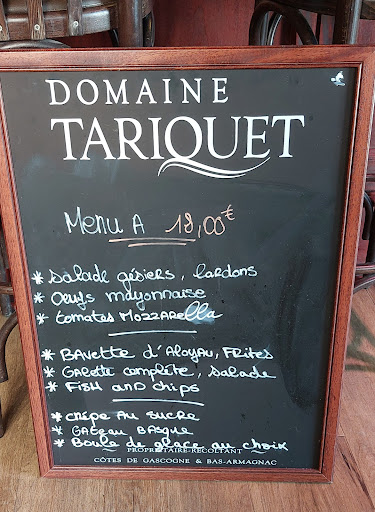 DOMAINE
TARIQUET
Menu A 18,00€
* Salade gésiers, lardons
* Oeufs mayonnaise
* tomates MOZZARella
* BAvette d'Aloyau, FRites
* GAlette complète, salade
* FisH AND chips
* CRêpe AU sucre
* GAteau BASque
* Boule de glace au choix
PROPRIÉTAIRE-RÉCOLTANT
CÔTES DE GASCOGNE & BAS-ARMAGNAC